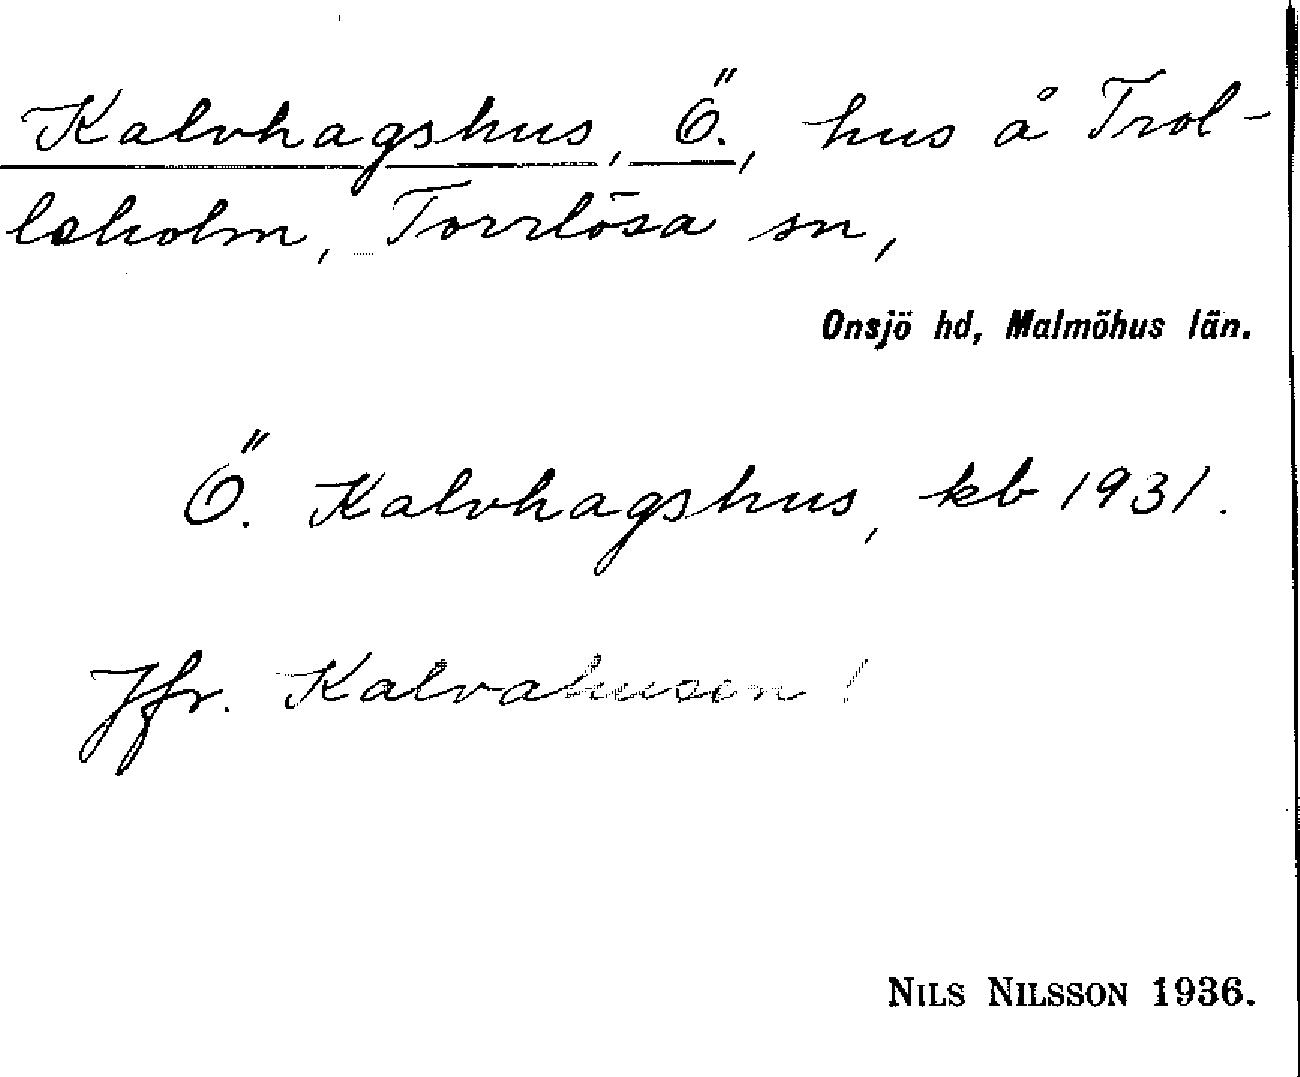 Kalvhagshus, Ö., hus å Trol-
leholm, Torrlösa sn,
Onsjö hd, Malmöhus län.
Ö. Kalvhagshus, kb 1931.
Jfr. Kalvahusen!
NILS NILSSON 1936.